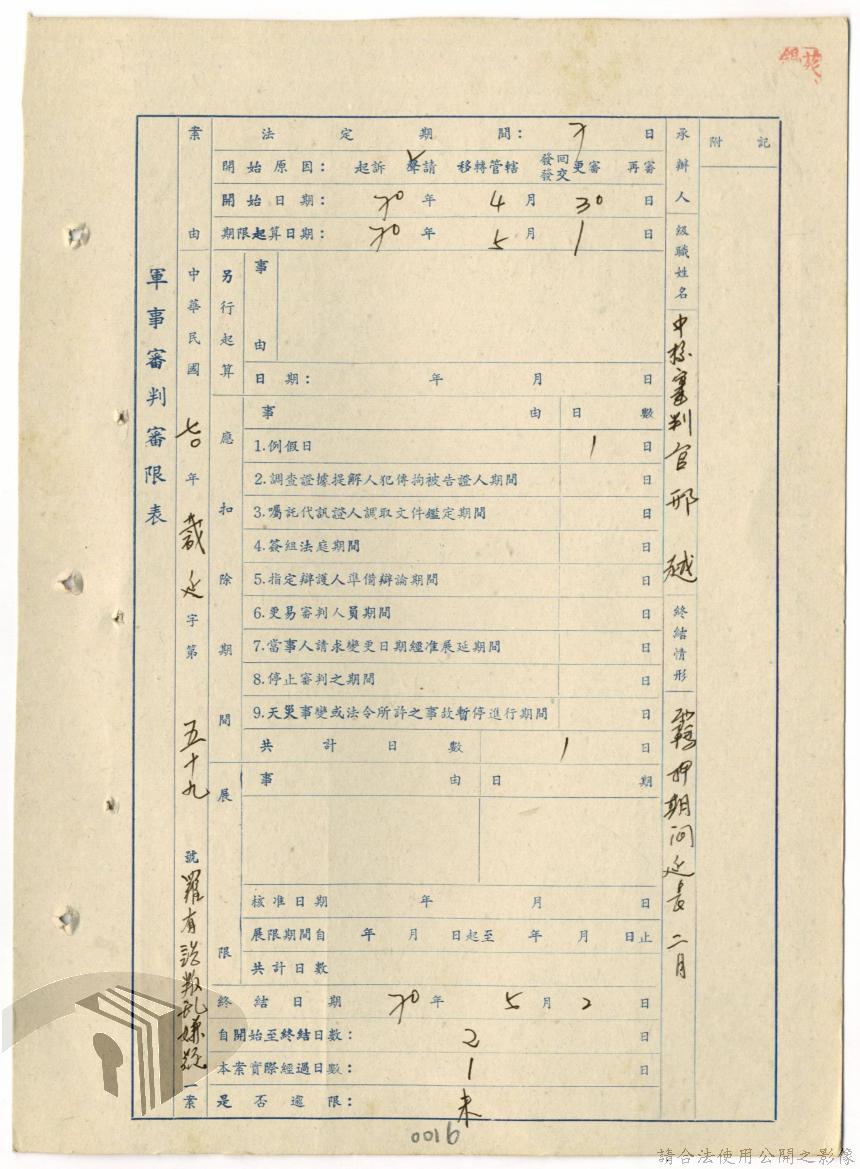 附記
承辦人級職姓名 中校審判官邢越 終結情形 羈押期間延長二月
法定期間: 7 日
開始原因: 起訴 聲請 ✓ 移轉管轄 發回發交更審 再審
開始日期: 70 年 4 月 30 日
期限起算日期: 70 年 5 月 1 日
另行起算
事由
日期: 年 月 日
應扣除期間
事由 日數
1.例假日 1 日
2.調查證據提解人犯傳拘被告證人期間 日
3.囑託代訊證人調取文件鑑定期間 日
4.簽組法庭期間 日
5.指定辯護人準備辯論期間 日
6.更易審判人員期間 日
7.當事人請求變更日期經准展延期間 日
8.停止審判之期間 日
9.天災事變或法令所許之事故暫停進行期間 日
共計日數 1 日
展限
事由 日期
核准日期 年 月 日
展限期間自 年 月 日起至 年 月 日止
共計日數
終結日期 70 年 5 月 2 日
自開始至終結日數: 2 日
本案實際經過日數: 1 日
是否逾限: 未
案由 中華民國 七○ 年 裁延 字第 五十九 號 羅有 叛亂嫌疑 一案
軍事審判審限表
0016
請合法使用公開之影像